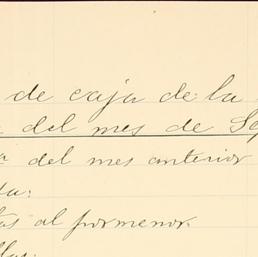 de caja de la
del mes de Se
del mes anterior
al pormenor.